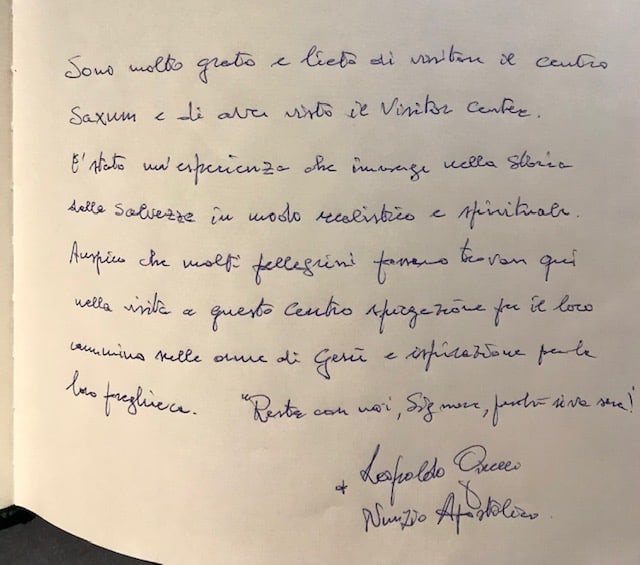 Sono molto grato e lieto di visitare il centro
Saxum e di aver visto il Visitor Center.
E' stato un'esperienza che immerge nella storia
della Salvezza in modo realistico e spirituale.
Auspico che molti pellegrini possano trovare qui
nella visita a questo centro spiegazione per il loro
cammino nelle orme di Gesù e ispirazione per la
loro preghiera. "Resta con noi, Signore, perché si va sera!
+ Leopoldo
Nunzio Apostolico.